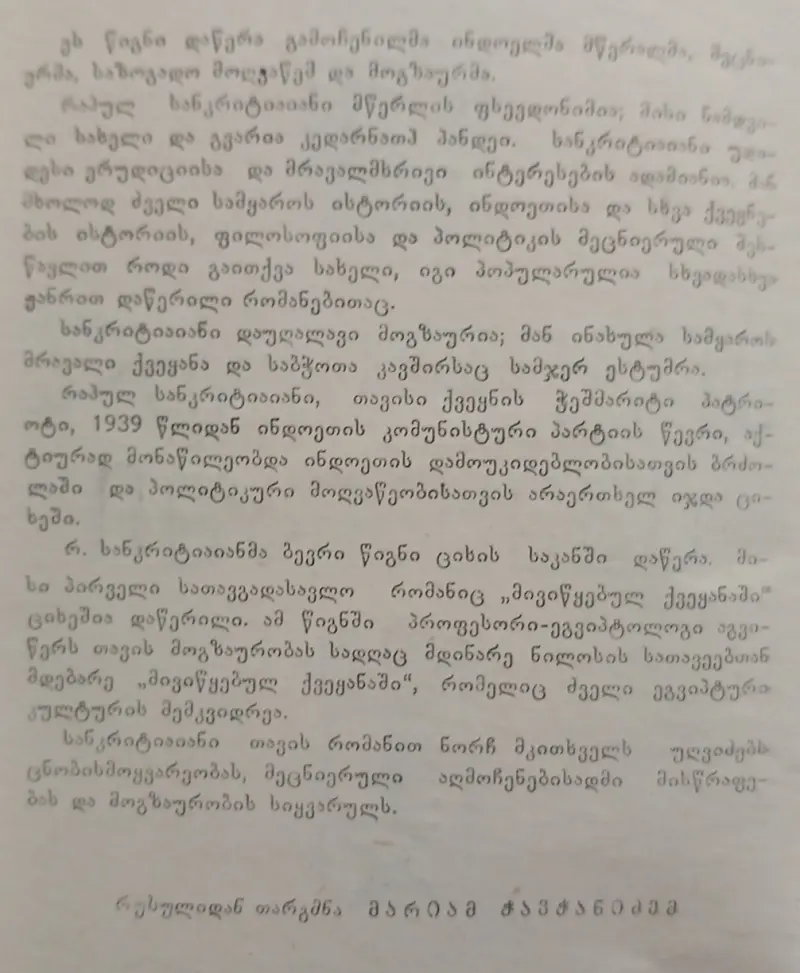 ეს წიგნი დაწერა გამოჩენილმა ინდოელმა მწერალმა, მეცნი-
ერმა, საზოგადო მოღვაწემ და მოგზაურმა.
რაჰულ სანკრიტიაიანი მწერლის ფსევდონიმია; მისი ნამდვი-
ლი სახელი და გვარია კედარნათჰ პანდეი. სანკრიტიაიანი უდი-
დესი ერუდიციისა და მრავალმხრივი ინტერესების ადამიანია. მან
მხოლოდ ძველი სამყაროს ისტორიის, ინდოეთისა და სხვა ქვეყნე-
ბის ისტორიის, ფილოსოფიისა და პოლიტიკის მეცნიერული შეს-
წავლით როდი გაითქვა სახელი, იგი პოპულარულია სხვადასხვა
ჟანრით დაწერილი რომანებითაც.
სანკრიტიაიანი დაუღალავი მოგზაურია; მან ინახულა სამყაროს
მრავალი ქვეყანა და საბჭოთა კავშირსაც სამჯერ ესტუმრა.
რაჰულ სანკრიტიაიანი, თავისი ქვეყნის ჭეშმარიტი პატრი-
ოტი, 1939 წლიდან ინდოეთის კომუნისტური პარტიის წევრი, აქ-
ტიურად მონაწილეობდა ინდოეთის დამოუკიდებლობისათვის ბრძო-
ლაში და პოლიტიკური მოღვაწეობისათვის არაერთხელ იჯდა ცი-
ხეში.
რ. სანკრიტიაიანმა ბევრი წიგნი ციხის საკანში დაწერა. მი-
სი პირველი სათავგადასავლო რომანიც „მივიწყებულ ქვეყანაში“
ციხეშია დაწერილი. ამ წიგნში პროფესორი-ეგვიპტოლოგი აგვი-
წერს თავის მოგზაურობას სადღაც მდინარე ნილოსის სათავეებთან
მდებარე „მივიწყებულ ქვეყანაში“, რომელიც ძველი ეგვიპტური
კულტურის მემკვიდრეა.
სანკრიტიაიანი თავის რომანით ნორჩ მკითხველს უღვიძებს
ცნობისმოყვარეობას, მეცნიერული აღმოჩენებისადმი მისწრაფე-
ბას და მოგზაურობის სიყვარულს.
რუსულიდან თარგმნა მარიამ ჭავჭანიძემ